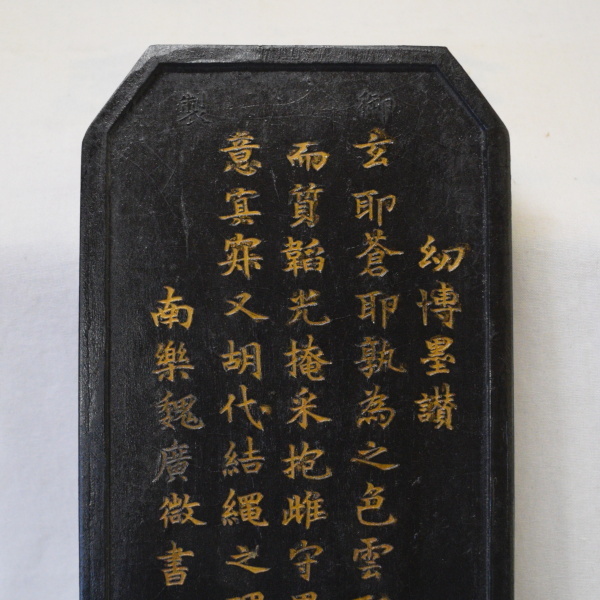 御製
幼博墨讃
玄耶蒼耶孰為之色雲
而質韜光掩采抱雌守
意寘寂又胡代結繩之
南樂魏廣微書